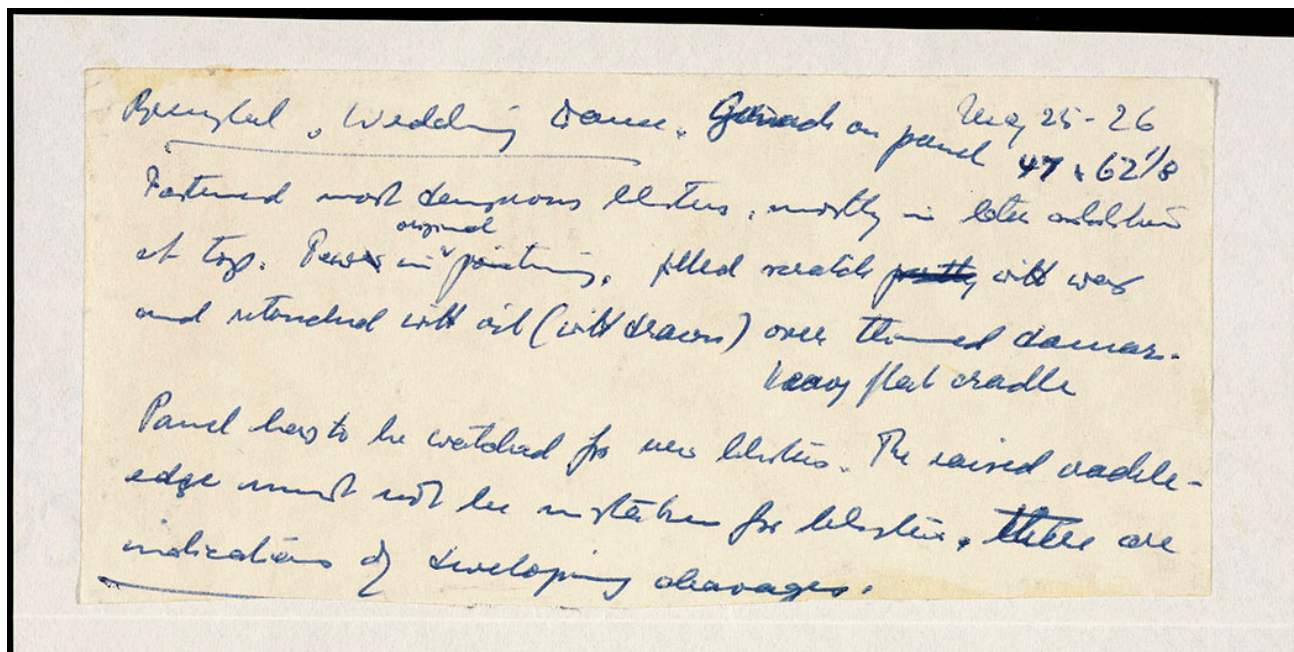 Brueghel, Wedding Dance. on panel May 25-26
47 x 62 1/8
Fastened most dangerous blisters, mostly in later addition
original
at top. Fewer in painting. Filled scratch partly with wax
and retouched with oil (withdrawn) over thinned damar.
Heavy flat cradle
Panel has to be watched for new blisters. The raised cradle-
edge must not be mistaken for blisters, there are
indications of developing cleavages.